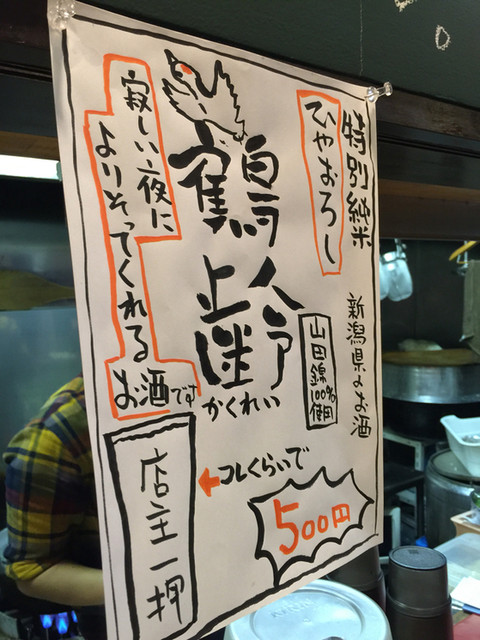 特別純米
ひやおろし
新潟県のお酒
鶴齢
かくれい
山田錦
100%
使用
寂しい夜に
よりそってくれる
お酒です
コレくらいで
500円
店主一押